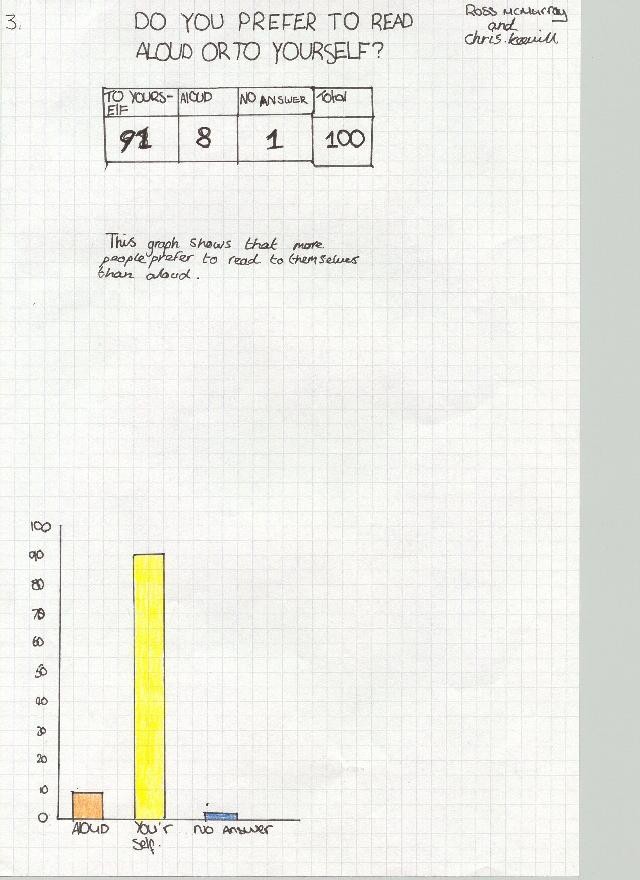 3.
DO YOU PREFER TO READ
ALOUD OR TO YOURSELF?
Ross McMurray
and
Chris.
TO YOURS- ALOUD NO ANSWER Total
ELF
91 8 1 100
This graph shows that more
people prefer to read to themselves
than aloud.
100
90
80
70
60
50
40
30
20
10
0
ALOUD You'r No Answer
Self.